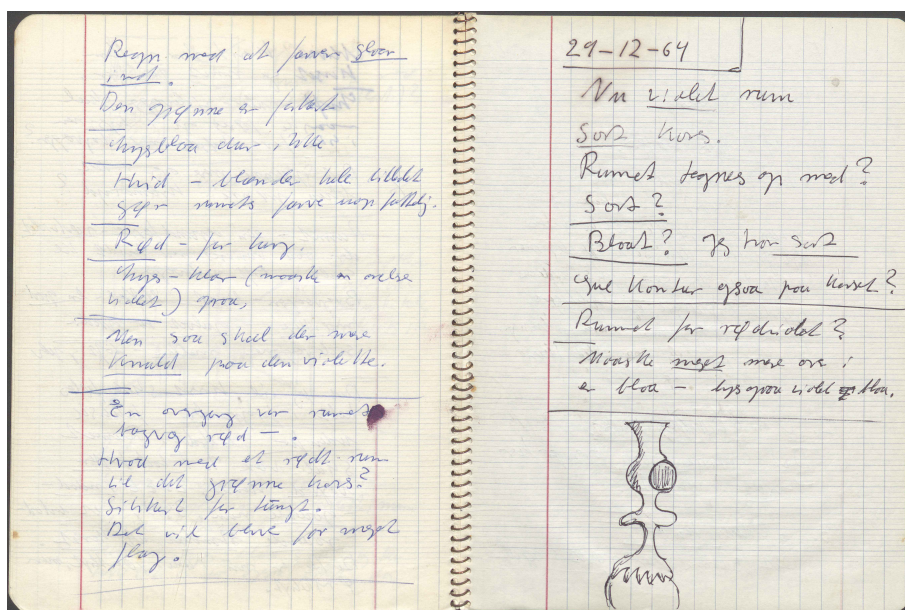 Regn med at farven slaar
ind.
Den grønne er
lysblaa der, lille
Hvid – blænder hele billedet
gør rumets farve
Rød – for tung.
Lyse-klar (maaske en
violet) graa,
Men saa skal der mere
knald paa den violette.
En overgang var rumet
rød —.
Hvad med et rødt rum
til det grønne kors?
Sikkert for tungt.
Det vil blive for meget
flag.
29-12-64
Nu violet rum
Sort kors.
Rumet tegnes op med?
Sort?
Blaat? Jeg tror sort
kontur ogsaa paa korset?
Rumet for rødviolet?
Maaske meget mere over i
en blaa – lysgraa violet blaa.